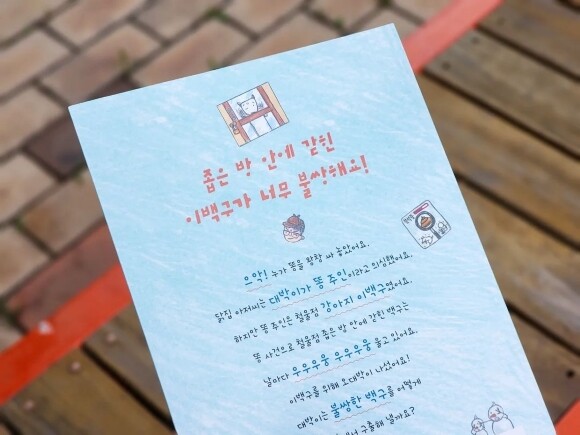 좁은 방 안에 갇힌
이백구가 너무 불쌍해요!
으악! 누가 똥을 왕창 싸 놓았어요.
닭집 아저씨는 대박이가 똥 주인이라고 의심했어요.
하지만 똥 주인은 철물점 강아지 이백구였어요.
똥 사건으로 철물점 좁은 방 안에 갇힌 백구는
날마다 우우우웅 우우우웅 울고 있어요.
이백구를 위해 오대박이 나섰어요!
대박이는 불쌍한 백구를 어떻게
구출해 낼까요?